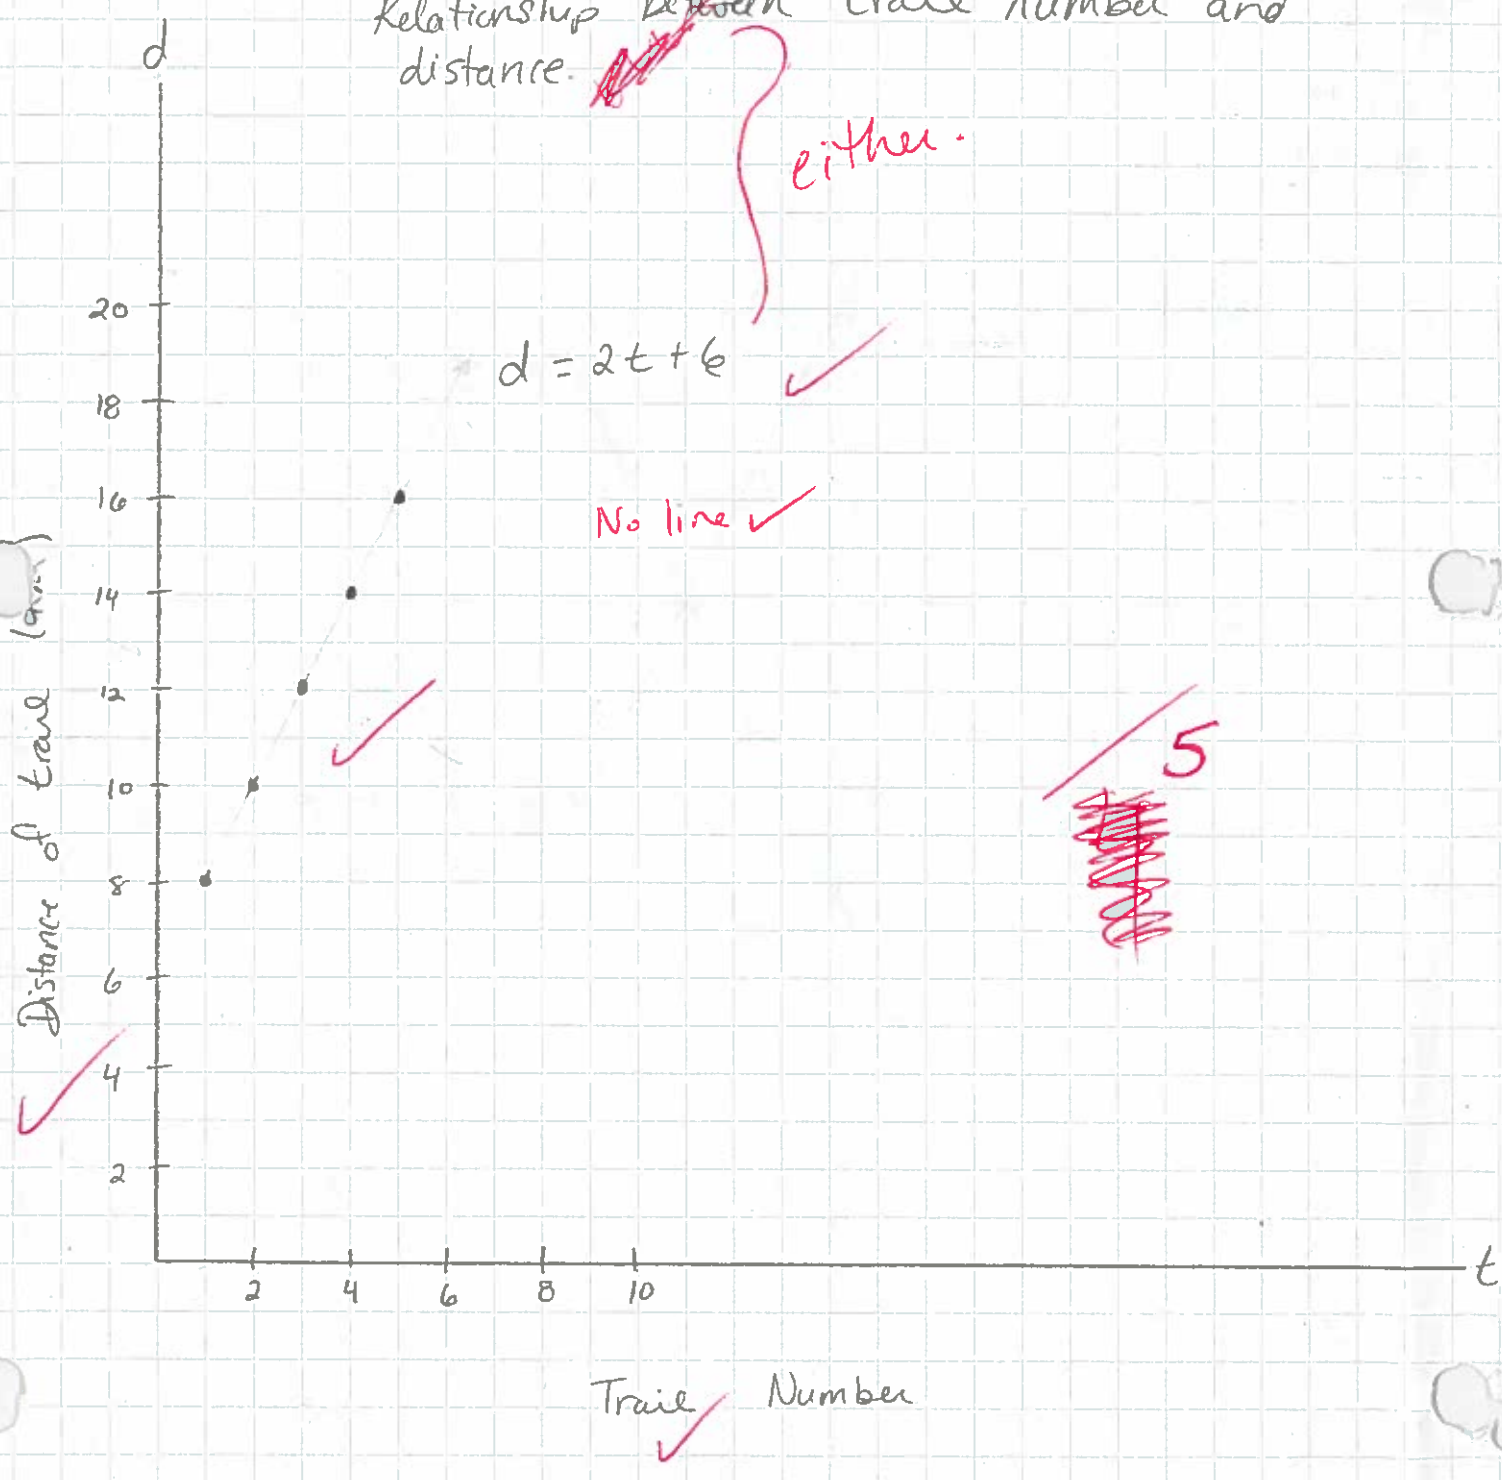 Relationship between trail number and
distance.
d
either.
20
d = 2t + 6
18
16
No line
14
12
10
8
6
4
2
Distance of trail (km)
/5
2 4 6 8 10
t
Trail Number